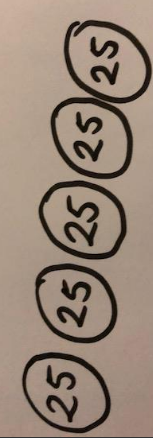 25
25
25
25
25